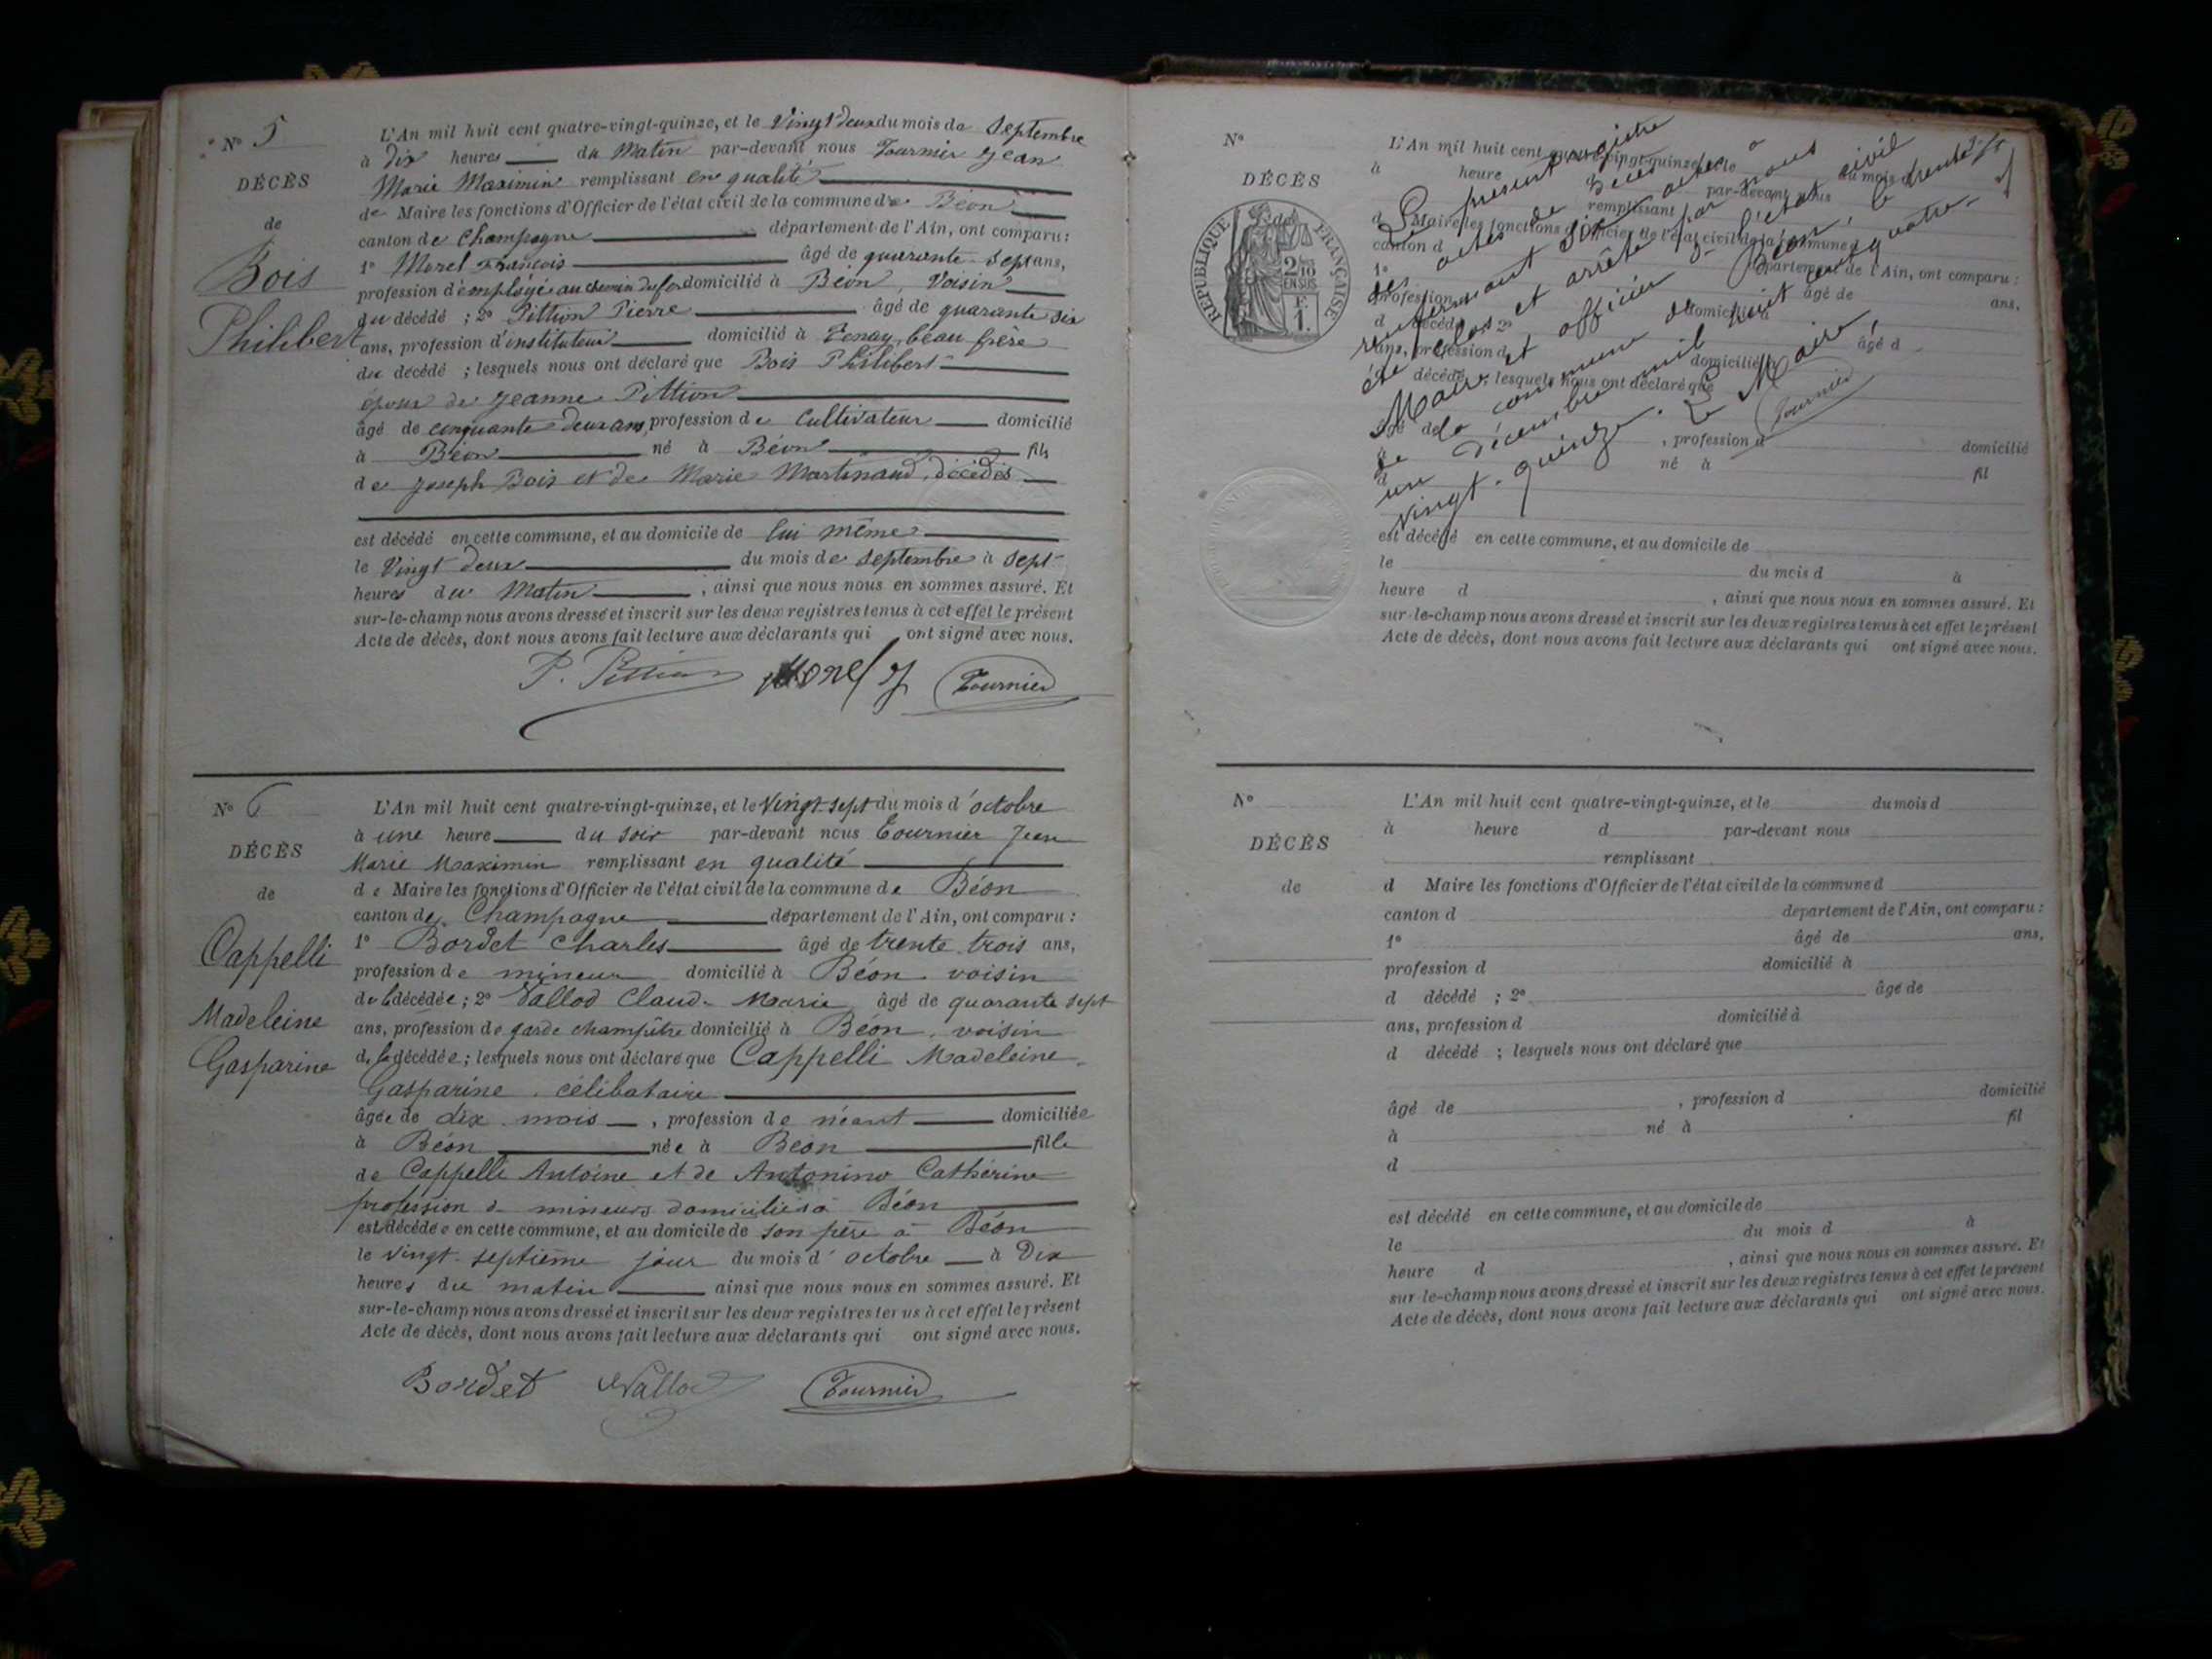 N° 5
DÉCÈS
de
Bois
Philibert
L'An mil huit cent quatre-vingt-quinze, et le Vingt deux du mois de Septembre
à Dix heures du Matin par-devant nous Tournier Jean
Marie Maximin remplissant en qualité
de Maire les fonctions d'Officier de l'état civil de la commune de Béon
canton de Champagne département de l'Ain, ont comparu :
1° Morel François âgé de quarante sept ans,
profession d'employé au chemin de fer domicilié à Béon, Voisin
du décédé ; 2° Pittion Pierre âgé de quarante six
ans, profession d'instituteur domicilié à Tenay, beau frère
du décédé ; lesquels nous ont déclaré que Bois Philibert
époux de Jeanne Pittion
âgé de cinquante deux ans, profession de Cultivateur domicilié
à Béon né à Béon fils
de Joseph Bois et de Marie Martinaud, décédés
est décédé en cette commune, et au domicile de lui même
le Vingt deux du mois de Septembre à Sept
heures du Matin, ainsi que nous nous en sommes assuré. Et
sur-le-champ nous avons dressé et inscrit sur les deux registres tenus à cet effet le présent
Acte de décès, dont nous avons fait lecture aux déclarants qui ont signé avec nous.
P. Pittion Morel f Tournier
N° 6
DÉCÈS
de
Cappelli
Madeleine
Gasparine
L'An mil huit cent quatre-vingt-quinze, et le Vingt sept du mois d'octobre
à une heure du soir par-devant nous Tournier Jean
Marie Maximin remplissant en qualité
de Maire les fonctions d'Officier de l'état civil de la commune de Béon
canton de Champagne département de l'Ain, ont comparu :
1° Bordet Charles âgé de trente trois ans,
profession de mineur domicilié à Béon. voisin
de la décédée ; 2° Vallod Claude Marie âgé de quarante sept
ans, profession de garde champêtre domicilié à Béon, voisin
de la décédée ; lesquels nous ont déclaré que Cappelli Madeleine
Gasparine. célibataire
âgée de dix mois, profession de néant domiciliée
à Béon née à Béon fille
de Cappelli Antoine et de Antonino Cathérine
profession de mineurs domiciliés à Béon
est décédée en cette commune, et au domicile de son père à Béon
le vingt-septième jour du mois d'octobre à Dix
heures du matin ainsi que nous nous en sommes assuré. Et
sur-le-champ nous avons dressé et inscrit sur les deux registres tenus à cet effet le présent
Acte de décès, dont nous avons fait lecture aux déclarants qui ont signé avec nous.
Bordet Vallod Tournier
N°
DÉCÈS
de
RÉPUBLIQUE FRANÇAISE
2/10 EN SUS
F. 1.
Le présent registre
des actes de décès
renfermant six actes a
été clos et arrêté par nous
Maire et officier de l'état civil
de la commune de Béon, le trente
un décembre mil huit cent quatre-
vingt-quinze. Le Maire,
Tournier
L'An mil huit cent quatre-vingt-quinze, et le du mois d
à heure par-devant nous
remplissant
d Maire les fonctions d'Officier de l'état civil de la commune d
canton d département de l'Ain, ont comparu :
1° âgé de ans,
profession d domicilié à
d décédé ; 2° âgé d
ans, profession d domicilié
d décédé ; lesquels nous ont déclaré que
âgé de , profession d domicilié
à né à fil
est décédé en cette commune, et au domicile de
le du mois d à
heure d , ainsi que nous nous en sommes assuré. Et
sur-le-champ nous avons dressé et inscrit sur les deux registres tenus à cet effet le présent
Acte de décès, dont nous avons fait lecture aux déclarants qui ont signé avec nous.
N°
DÉCÈS
de
L'An mil huit cent quatre-vingt-quinze, et le du mois d
à heure d par-devant nous
remplissant
d Maire les fonctions d'Officier de l'état civil de la commune d
canton d département de l'Ain, ont comparu :
1° âgé de ans,
profession d domicilié à
d décédé ; 2° âgé de
ans, profession d domicilié à
d décédé ; lesquels nous ont déclaré que
âgé de , profession d domicilié
à né à fil
d
est décédé en cette commune, et au domicile de
le du mois d à
heure d , ainsi que nous nous en sommes assuré. Et
sur-le-champ nous avons dressé et inscrit sur les deux registres tenus à cet effet le présent
Acte de décès, dont nous avons fait lecture aux déclarants qui ont signé avec nous.